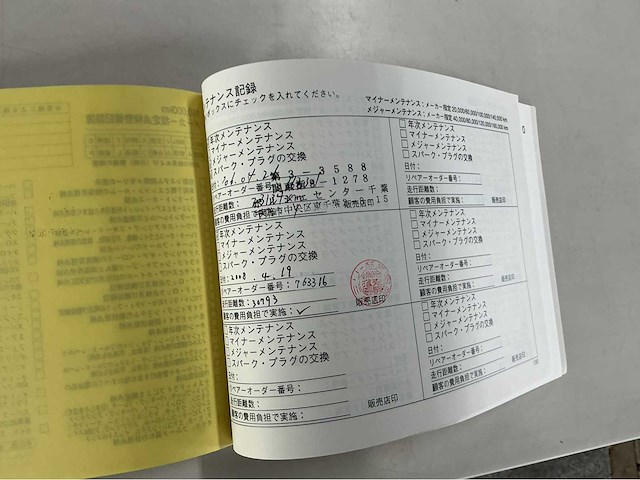 テナンス記録
ボックスにチェックを入れてください。
マイナーメンテナンス:メーカー指定 20,000/60,000/100,000/140,000 km
メジャーメンテナンス:メーカー指定 40,000/80,000/120,000/160,000 km
年次メンテナンス
マイナーメンテナンス
メジャーメンテナンス
スパーク・プラグの交換
日付:
リペアーオーダー番号:
走行距離数:
顧客の費用負担で実施:
3-3588
-1278
センター千葉
市中央区
15
販売店印
年次メンテナンス
マイナーメンテナンス
メジャーメンテナンス
スパーク・プラグの交換
日付:2008.4.19
リペアーオーダー番号:763316
走行距離数:30793
顧客の費用負担で実施:✓
販売店印
年次メンテナンス
マイナーメンテナンス
メジャーメンテナンス
スパーク・プラグの交換
日付:
リペアーオーダー番号:
走行距離数:
顧客の費用負担で実施:
販売店印
年次メンテナンス
マイナーメンテナンス
メジャーメンテナンス
スパーク・プラグの交換
日付:
リペアーオーダー番号:
走行距離数:
顧客の費用負担で実施:
販売店印
年次メンテナンス
マイナーメンテナンス
メジャーメンテナンス
スパーク・プラグの交換
日付:
リペアーオーダー番号:
走行距離数:
顧客の費用負担で実施:
販売店印
年次メンテナンス
マイナーメンテナンス
メジャーメンテナンス
スパーク・プラグの交換
日付:
リペアーオーダー番号:
走行距離数:
顧客の費用負担で実施:
販売店印